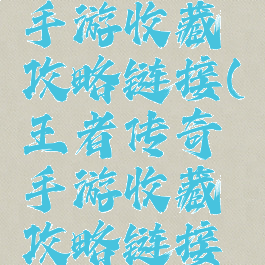 手游收藏
攻略链接(
王者传奇
手游收藏
攻略链接